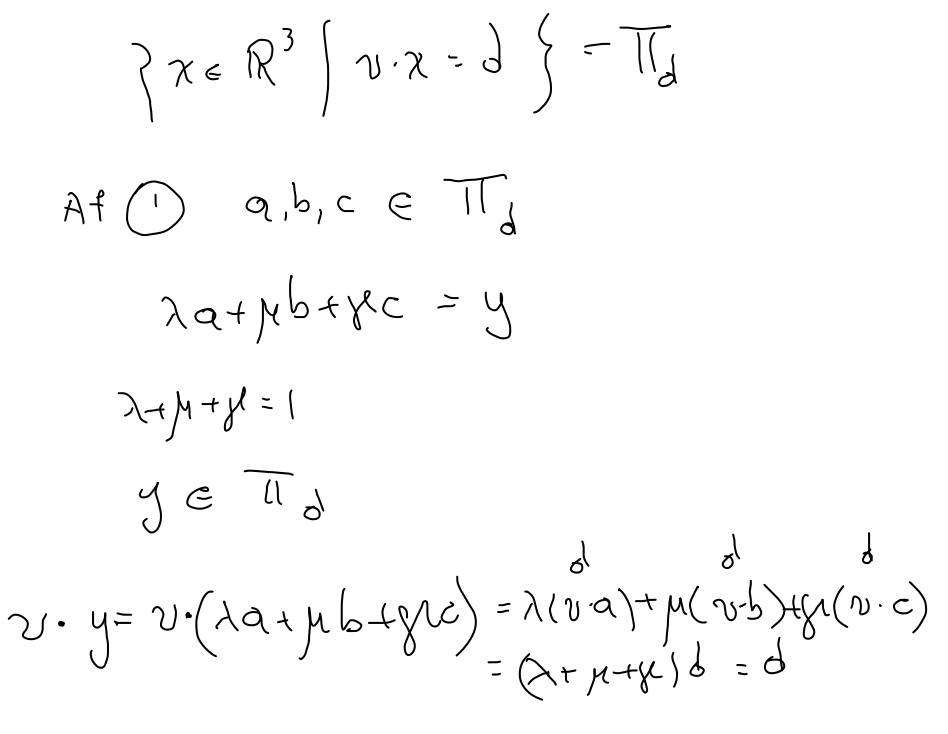 {x ∈ ℝ³ | v·x = d} = Π_d
Af ① a, b, c ∈ Π_d
λa + μb + γc = y
λ + μ + γ = 1
y ∈ Π_d
d d d
v · y = v·(λa + μb + γc) = λ(v·a) + μ(v·b) + γ(v·c)
= (λ + μ + γ)d = d